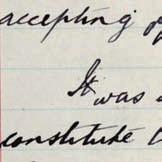 accepting of
It was
constitute